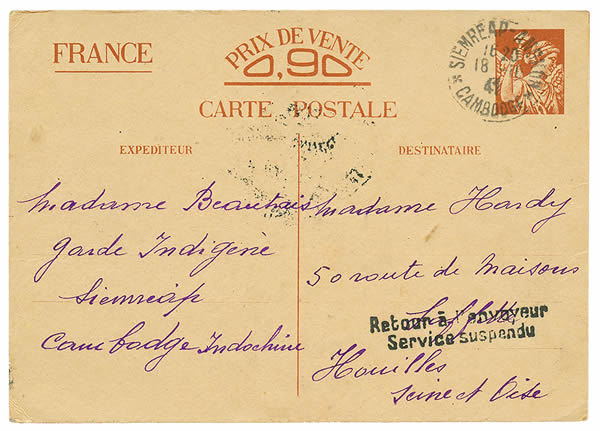 FRANCE
PRIX DE VENTE
0,90
CARTE POSTALE
SIEMREAP-ANGKOR
16 20
18
41
CAMBODGE
EXPEDITEUR
DESTINATAIRE
Madame Beauvais
Garde Indigène
Siemréap
Cambodge Indochine
Madame Hardy
50 route de Maisons
Retour à l'envoyeur
Service suspendu
Houilles
Seine et Oise